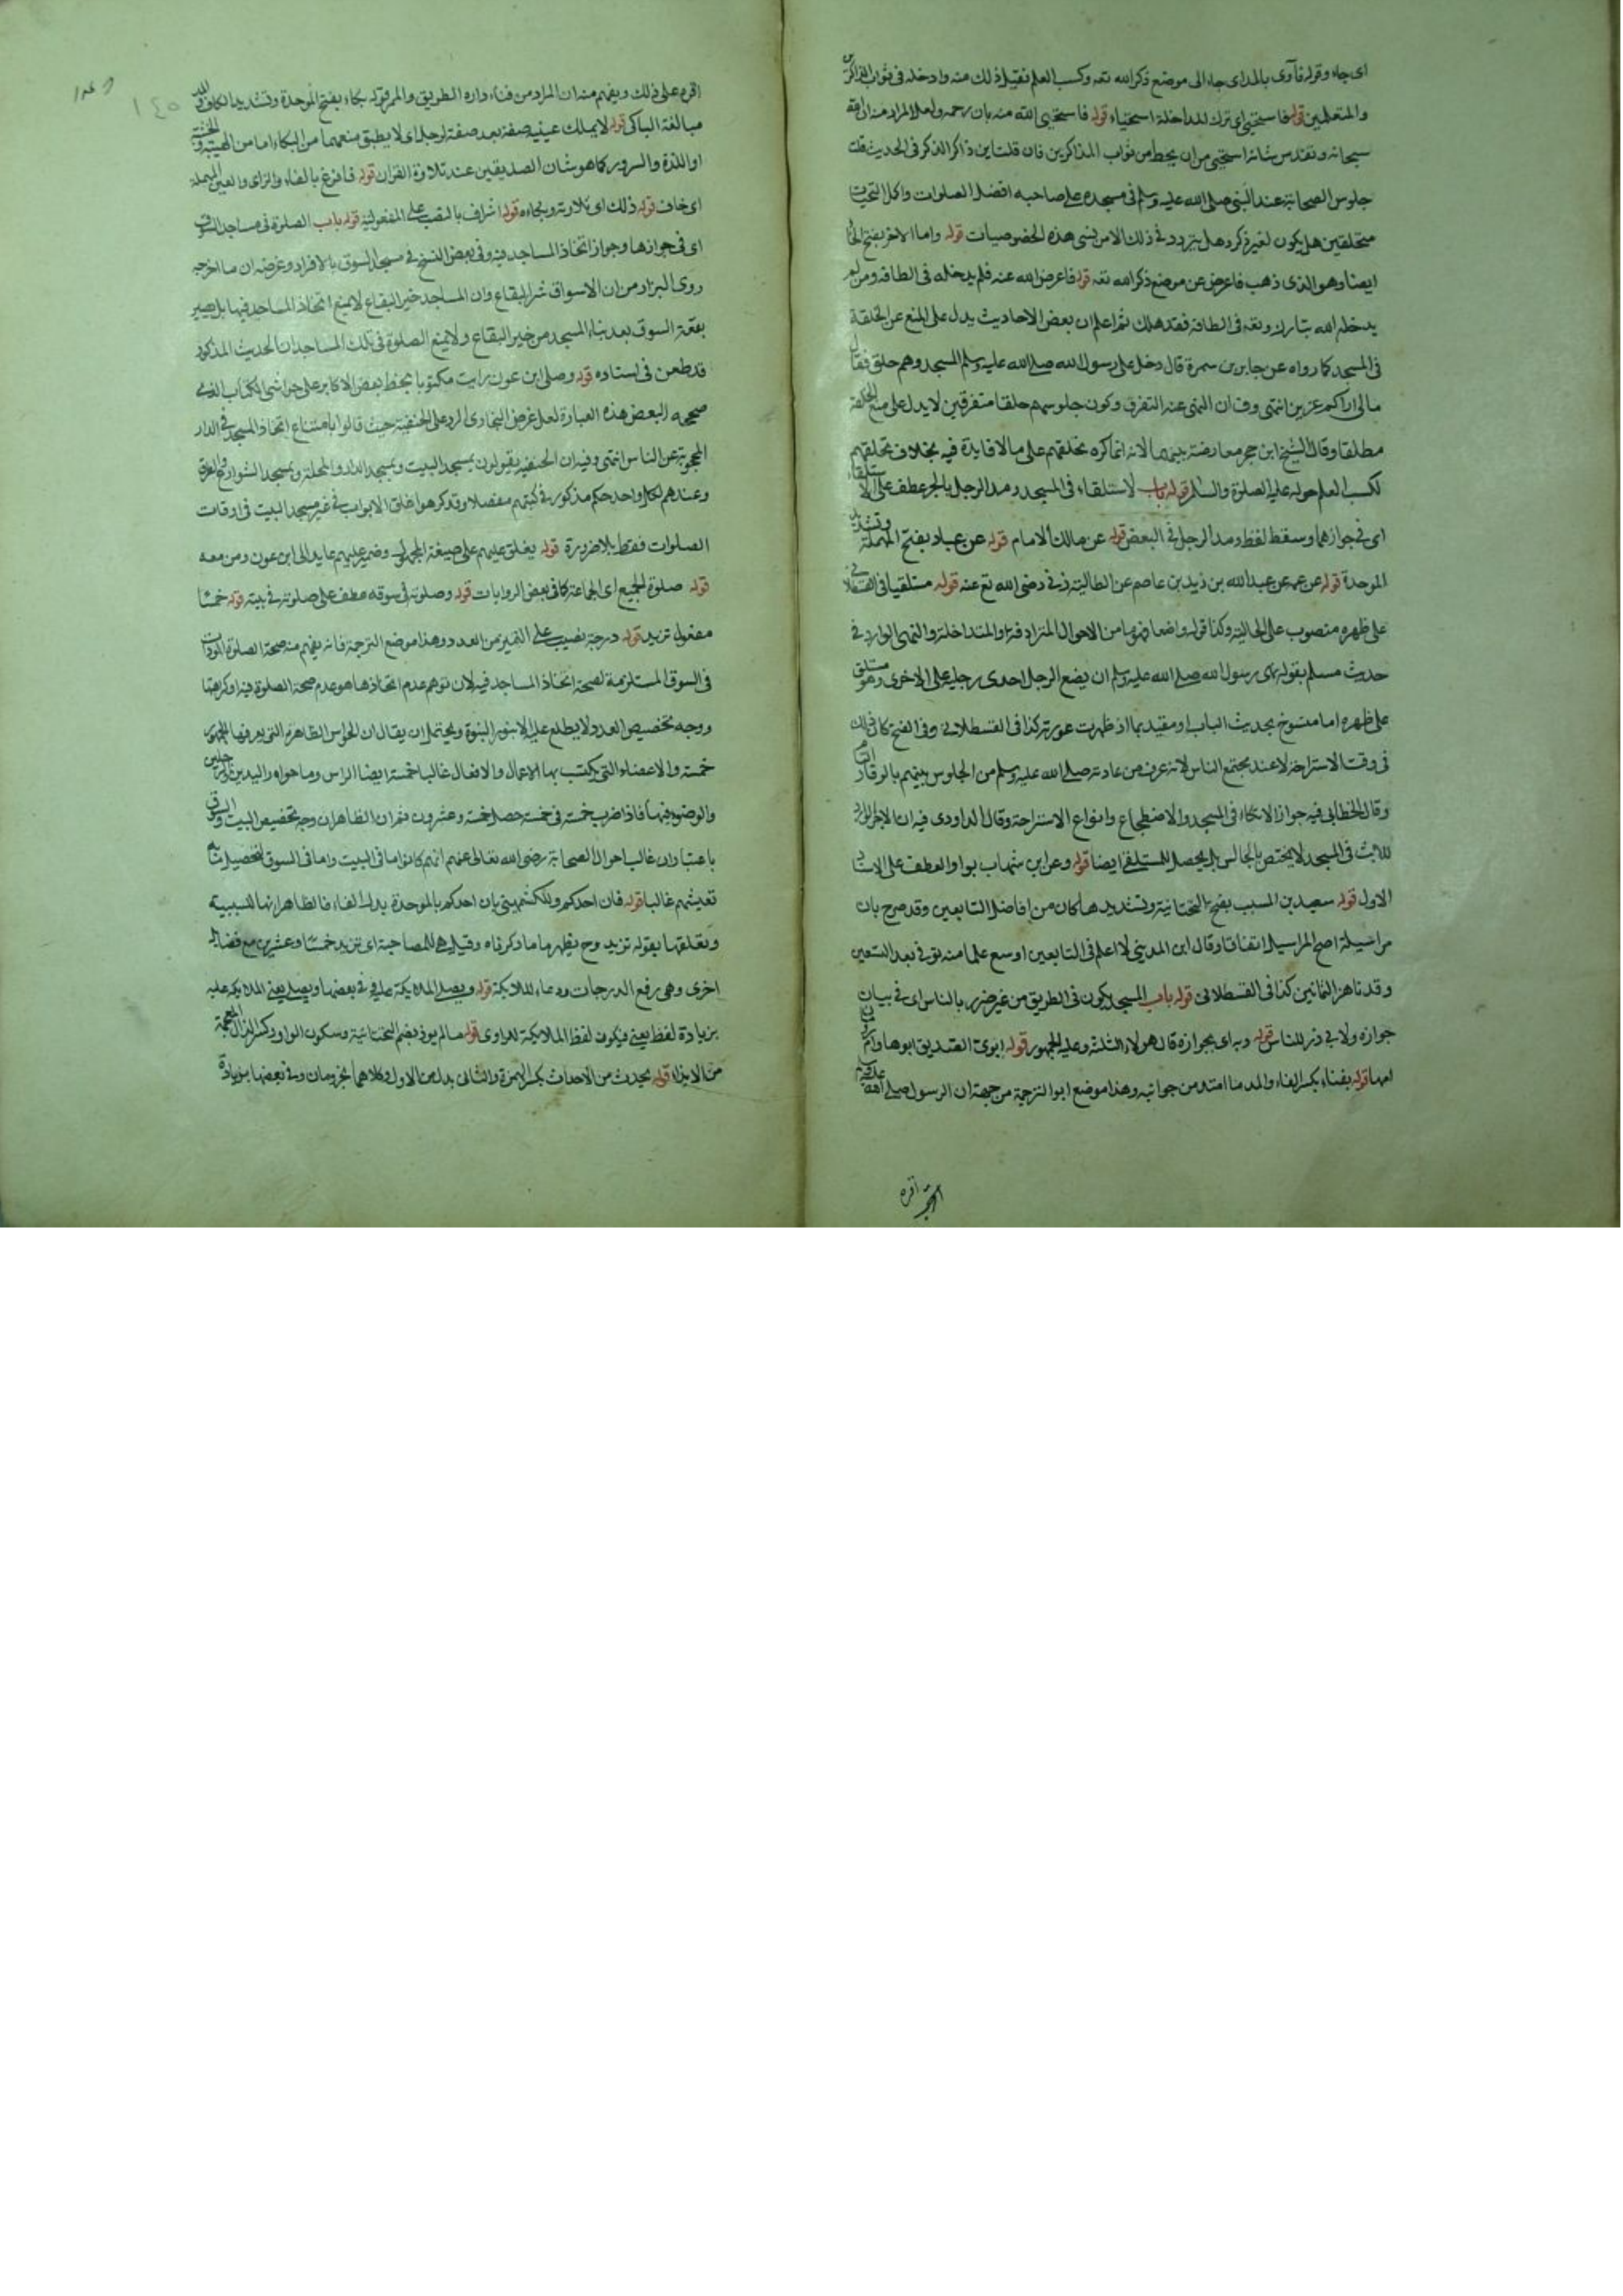 اى جاء وقوله فآوى بالمد اى جاء الى موضع ذكر الله تعه وكسب العلم فقيل ذلك منه وادخله فى ثواب الذاكرين
والمتعلمين قوله فاستحيى اى ترك المداخلة استحياء قوله فاستحيى الله منه بان رحمه ولعل المراد منه ان الله
سبحانه وتقدس شانه استحيى من ان يحط من ثواب المذاكرين فان قلت اين ذاكر الذكر فى الحديث قلت
جلوس الصحابة عند النبى صلى الله عليه وسلم فى مسجده على صاحبه افضل الصلوات واكمل التحيات
متحلقين هل يكون لغير ذكر وهل يتردد فى ذلك الا من نسى هذه الخصوصيات قوله واما الاخر بفتح الخا
ايضا وهو الذى ذهب فاعرض عن موضع ذكر الله تعه قوله فاعرض الله عنه فلم يدخله فى الطافه ومن لم
يدخله الله تبارك وتعه فى الطافه فقد هلك ثم اعلم ان بعض الاحاديث يدل على المنع عن الحلقة
فى المسجد كما رواه عن جابر بن سمرة قال دخل على رسول الله صلى الله عليه وسلم المسجد وهم حلق فقال
مالى اراكم عزين انتهى وفان النهى عنه التفرق وكون جلوسهم حلقا متفرقين لا يدل على منع الحلقة
مطلقا وقال الشيخ ابن حجر معارضة بينهما لانه انما كره تحلقهم على مالا فايدة فيه بخلاف تحلقهم
لكسب العلم حوله عليه الصلوة والسلام قوله باب لاستلقاء فى المسجد ومد الرجل بالجر عطف على الاستلقاء
اى فى جوازهما وسقط لفظ ومد الرجل فى البعض قوله عن مالك الامام قوله عن عباد بفتح المهملة وتشديد
الموحدة قوله عن عمه عن عبد الله بن زيد بن عاصم رضى الله تع عنه قوله مستلقيا فى القسطلانى
على ظهره منصوب على الحالية وكذا قوله واضعا فهما من الاحوال المترادفة او المتداخلة والنهى الوارد فى
حديث مسلم بقوله نهى رسول الله صلى الله عليه وسلم ان يضع الرجل احدى رجليه على الاخرى وهو مستلق
على ظهره اما منسوخ بحديث الباب او مقيد بما اذ ظهرت عورته كذا فى القسطلانى وفى الفتح كان ذلك
فى وقت الاستراحة لا عند مجتمع الناس لانه عرف من عادته صلى الله عليه وسلم من الجلوس بينهم بالوقار التام
وقال الخطابى فيه جواز الاتكاء فى المسجد والاضطجاع وانواع الاستراحة وقال الداودى فيه ان الاجر الوارد
للابث فى المسجد لا يختص بالجالس بل يحصل للمستلقى ايضا قوله وعن ابن شهاب بواو العطف على الاسناد
الاول قوله سعيد بن المسيب بفتح التحتانية وتشديدها كان من افاضل التابعين وقد صرح بان
مراسيله اصح المراسيل اتفاقا وقال ابن المدينى لا اعلم فى التابعين اوسع علما منه توفى بعد التسعين
وقد ناهز الثمانين كذا فى القسطلانى قوله باب المسجد يكون فى الطريق من غير ضرر بالناس اى فى بيان
جوازه ولابى ذر للناس قوله وبه اى بجوازه قال هولاء الثلثة وعليه الجمهور قوله ابوى الصديق ابوها وام رومان
امها قوله بفناء بكسر الفاء والمد ما امتد من جوانبه وهذا موضع ابو الترجمة من جهة ان الرسول صلى الله عليه وسلم
اقره
اقره على ذلك ويفهم منه ان المراد من فناء داره الطريق والممر قوله بكاء بفتح الموحدة وتشديد الكاف
مبالغة الباكى قوله لا يملك عينيه صفة بعد صفة لرجل اى لا يطيق منعهما من البكاء اما من الهيبة والخشية
او اللذة والسرور كما هو شان الصديقين عند تلاوة القران قوله فافزع بالفاء والزاى والعين المهملة
اى خاف قوله ذلك اى تلاوته وبكاءه قوله اشراف بالنصب على المفعولية قوله باب الصلوة فى مساجد السوق
اى فى جوازها وجواز اتخاذ المساجد فيه وفى بعض النسخ فى مسجد السوق بالافراد وغرضه ان ما اخرجه
روى البزار من ان الاسواق شر البقاع وان المساجد خير البقاع لا يمنع اتخاذ المساجد فيها بل يصير
بقعة السوق بعد بناء المسجد من خير البقاع ولا يمنع الصلوة فى تلك المساجد ان الحديث المذكور
قد طعن فى اسناده قوله وصلى ابن عون رايت مكتوبا بخط بعض الاكابر على حواشى الكتاب الذى
صححه البعض هذه العبارة لعل غرض البخارى الرد على الحنفية حيث قالوا بامتناع اتخاذ المسجد فى الدار
المحجوبة عن الناس انتهى وفيه ان الحنفية يقولون بمسجد البيت وبمسجد الدار والمحلة وبمسجد الشوارع
وعندهم لكل واحد حكم مذكور فى كتبهم مفصلا وقد كرهوا غلق الابواب فى غير مسجد البيت فى اوقات
الصلوات فقط بلا ضرورة قوله يغلق عليهم على صيغة المجهول وضمير عليهم عايد الى ابن عون ومن معه
قوله صلوة الجميع اى الجماعة كما فى بعض الروايات قوله وصلوته فى سوقه عطف على صلوته فى بيته قوله خمسا
مفعول تزيد قوله درجة نصب على التميز من العدد وهذا موضع الترجمة فانه يفهم منه صحة الصلوة
فى السوق المستلزمة لصحة اتخاذ المساجد فيه لان توهم عدم اتخاذها هو عدم صحة الصلوة فيه او كراهتها
ووجه تخصيص العدد لا يطلع عليه الا بنور النبوة ويحتمل ان يقال ان الحواس الظاهرة التى يعرفها الجمهور
خمسة والاعضاء التى يكتسب بها الاعمال والافعال غالبا خمسة ايضا الراس وما حواه واليدين والرجلين
والوضوء فيها فاذا ضرب خمسة فى خمسة حصل خمسة وعشرون ثم ان الظاهر ان وجه تخصيص البيت والسوق
باعتبار ان غالب احوال الصحابة رضى الله تعالى عنهم انهم كانوا ما فى البيت واما فى السوق لتحصيل
تعيشهم غالبا قوله فان احدكم وللكشميهنى بان احدكم بالموحدة بدل الفاء فالظاهر انها للسببية
وتعلقها بقوله تزيد وح يظهر ما ما ذكرناه وقيل هى للمصاحبة اى تزيد خمسا وعشرين مع فضائل
اخرى وهى رفع الدرجات ودعاء الملايكة قوله ويصلى الملايكة عليه وفى بعضها ويصلى يعنى الملايكة عليه
بزيادة لفظ يعنى فيكون لفظ الملايكة للراوى قوله مالم يوذ بضم التحتانية وسكون الواو وكسر الذال المعجمة
من الايذاء قوله يحدث من الاحداث بكسر الهمزة والثانى بدل من الاول وكلاهما مجزومان وفى بعضها بزيادة